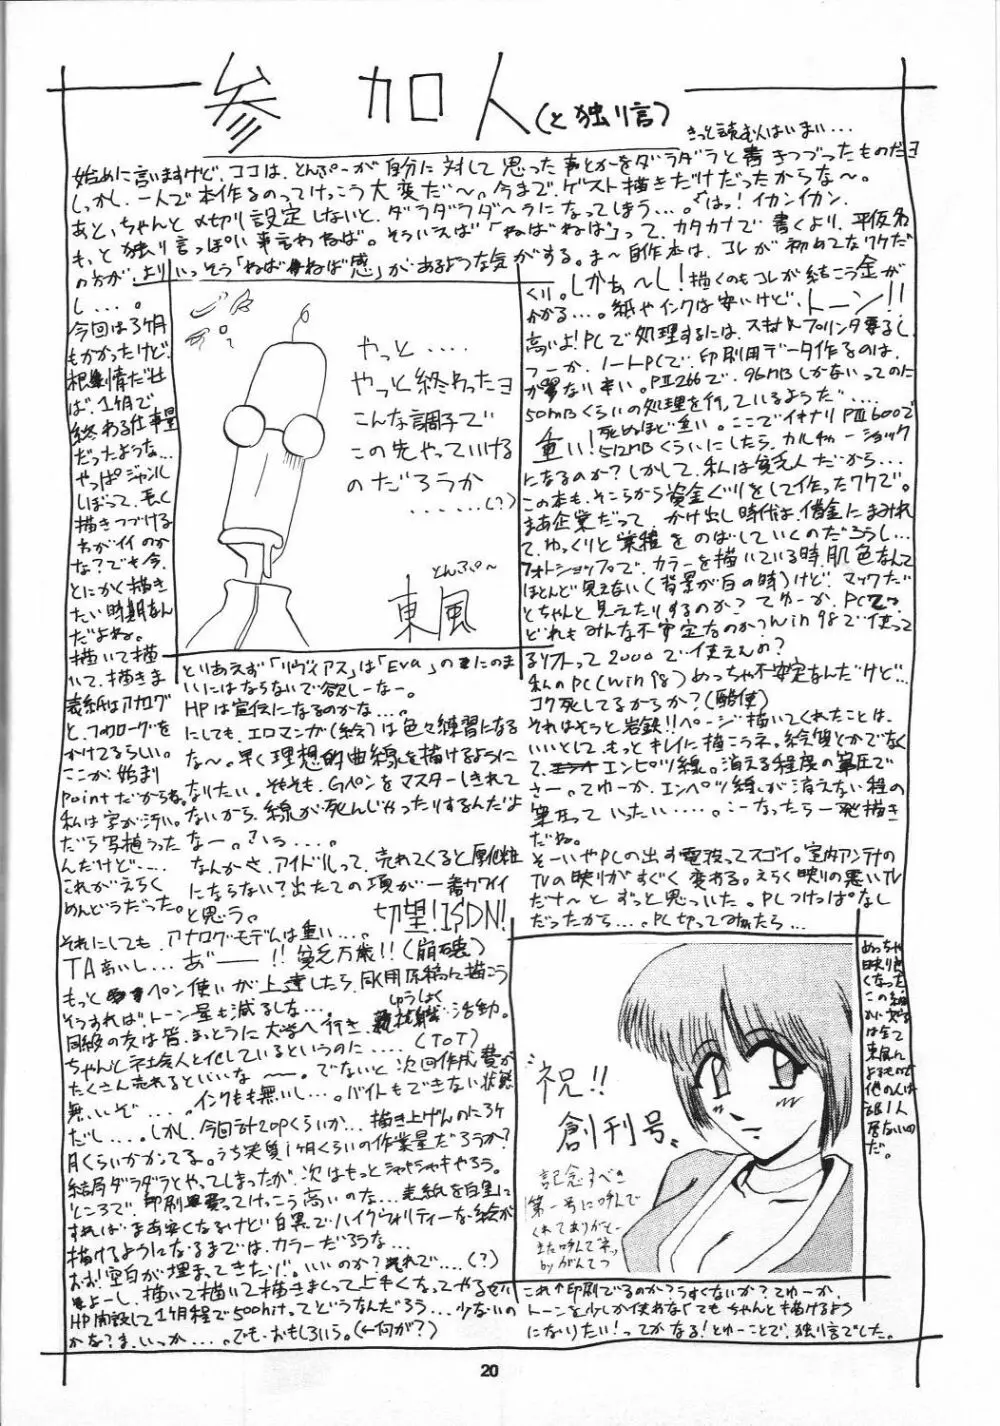 参加人(と独り言)
きっと読む人はいまい...
始めに言いますけど、ココは、とんぷーが自分に対して思った事とかをダラダラと書きつづったものだヨ
しかし、一人で本作るのってけっこう大変だ〜。今まで、ゲスト描きだけだったからな〜。
あと、ちゃんと〆切り設定しないと、ダラダラダ〜ラになってしまう...。「はっ!イカンイカン.
もっと独り言っぽい事言わねば。そういえば「ねばねば」って、カタカナで書くより、平仮名
の方が、よりいっそう「ねばねば感」があるような気がする。ま〜自作本は、コレが初めてなワケだ
し....。
今回は3ヶ月
もかかったけど、
根性情だせ
ば、1ヶ月で
終わる仕事量
だったような...
やっぱジャンル
しぼって、長く
描きつづける
方がイイのか
な?でも今、
とにかく描き
たい時期なん
だよね。
描いて描
いて、描きま
表紙はアナログ
と、フォトショップを
かけてるらしい。
ここが始まり
pointだからね。
私は字が汚い。
だら写植うった
んだけど....
これがえらく
めんどうだった。
やっと....
やっと終わったヨ
こんな調子で
この先やっていける
のだろうか
......(?)
とんぷ〜
東風
とりあえず「リヴァイアス」は「Eva」の二のま
いにはならないで欲しーなー。
HPは宣伝になるのかな...。
にしても、エロマンガ(絵)は色々練習になる
な〜。早く理想的曲線を描けるように
なりたい。そもそも、Gペンをマスターしきれて
ないから、線が死んじゃったりするんだよ
なー。さいら....。
なんかさ、アイドルって、売れてくると厚化粧
にならない?出たての頃が一番カワイイ
と思う。
切望!ISDN!
それにしても、アナログ・モデムは重い...。
TA高いし... あ゛ー!!貧乏万歳!!(崩壊)
もっとペン使いが上達したら、同人用原稿に描こう
そうすれば、トーン量も減るしな...。
同級の友は皆、まっとうに大学へ行き、就職活動。
しゅうしょく
ちゃんと社会人と化しているというのに....(ToT)
たくさん売れるといいな〜。でないと次回作成費が
無いぞ....。インクもも無いし...。バイトもできない状態
だし....。しかし、今回計20Pくらいか...描き上げんのに3ヶ
月くらいかかってる。うち実質1ヶ月くらいの作業量だろうか?
結局ダラダラとやってしまったが、次はもっとシャキシャキやろう。
ところで、印刷費ってけっこう高いのな...表紙を白黒に
すればまあ安くなるけど白黒でハイクヴォリティーな絵が
描けるようになるまでは、カラーだろうな...
おお!空白が埋まってきたぞ。いいのか?それで....(?)
よーし、描いて描いて描きまくって上手くなってやるぜい
HP開設して1ヶ月程で500hitってどうなんだろう...少ないの
かな?ま、いっか....。でも、おもしろいう。(←何が?)
くり。しかぁ〜し!描くのもコレが結こう金が
かかる...。紙やインクは安いけど、トーン!!
高いよ!PCで処理するには、スキャナ、プリンタ要るし
つーか、ノートPCで、印刷用データ作るのは、
かなり辛い。PⅡ266で、96MBしかないってのに
50MBくらいの処理を行っているようだ....
死ぬほど重い。ここでイキナリPⅢ600で
重い!512MBくらいにしたら、カルチャーショック
になるのか?しかして、私は貧乏人だから...
この本も、そこらから資金ぐりをして作ったワケで。
まあ企業だって、かけ出し時代は、借金にまみれ
て、ゆっくりと業績をのばしていくのだろうし...
フォトショップで、カラーを描いている時、肌色なんて
ほとんど見えない(背景が白の時)けど、マックだ
とちゃんと見えたりするのか?てゆーか、PCって
どれもみんな不安定なのか?Win98で使って
るソフトって2000で使えんの?
私のPC(win98)めっちゃ不安定なんだけど...
コク死してるからか?(酷使)
それはそうと岩鉄!!ページ描いてくれたことは、
いいとして、もっとキレイに描こうネ。絵質とかでなく
て、エンピツ線。消える程度の筆圧で
さー。てゆーか、エンペツ線が消えない程の
筆圧っていったい.....。こーなったら一発描き
だね。
そーいやPCの出す電波ってスゴイ。室内アンテナの
TVの映りがすぐく変わる。えらく映りの悪いTV
だナ〜とずっと思っていた。PCつけっぱなし
だったから...。PC切ってみたら...
めっちゃ
映り良
くなった
この紙
は全て
東風に
よるもので
他の人は
部1人
居ないの
だ。
祝!!
創刊号。
記念すべき
第一号に呼んで
くれてありがとー
また呼んでネッ
byがんてつ
これ↑印刷でるのか?うすくないか?てゆーか、
トーンを少しか使わなくてもちゃんと描けるよう
になりたい!ってかなる!とゆーことで、独り言でした。
20